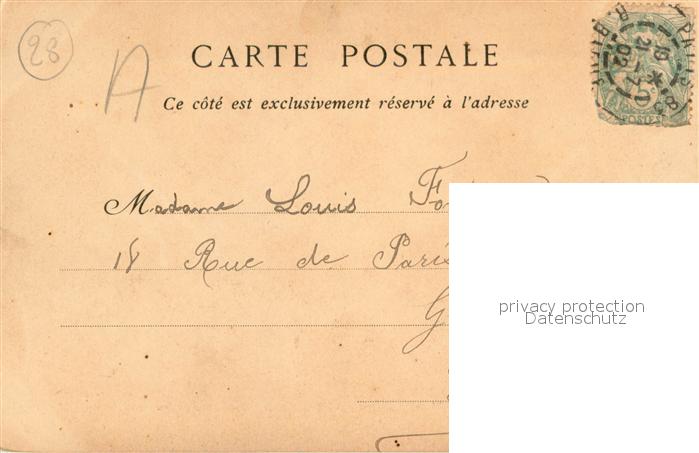 28
A
CARTE POSTALE
Ce côté est exclusivement réservé à l'adresse
POSTES
Madame Louis
18 Rue de Paris
privacy protection
Datenschutz